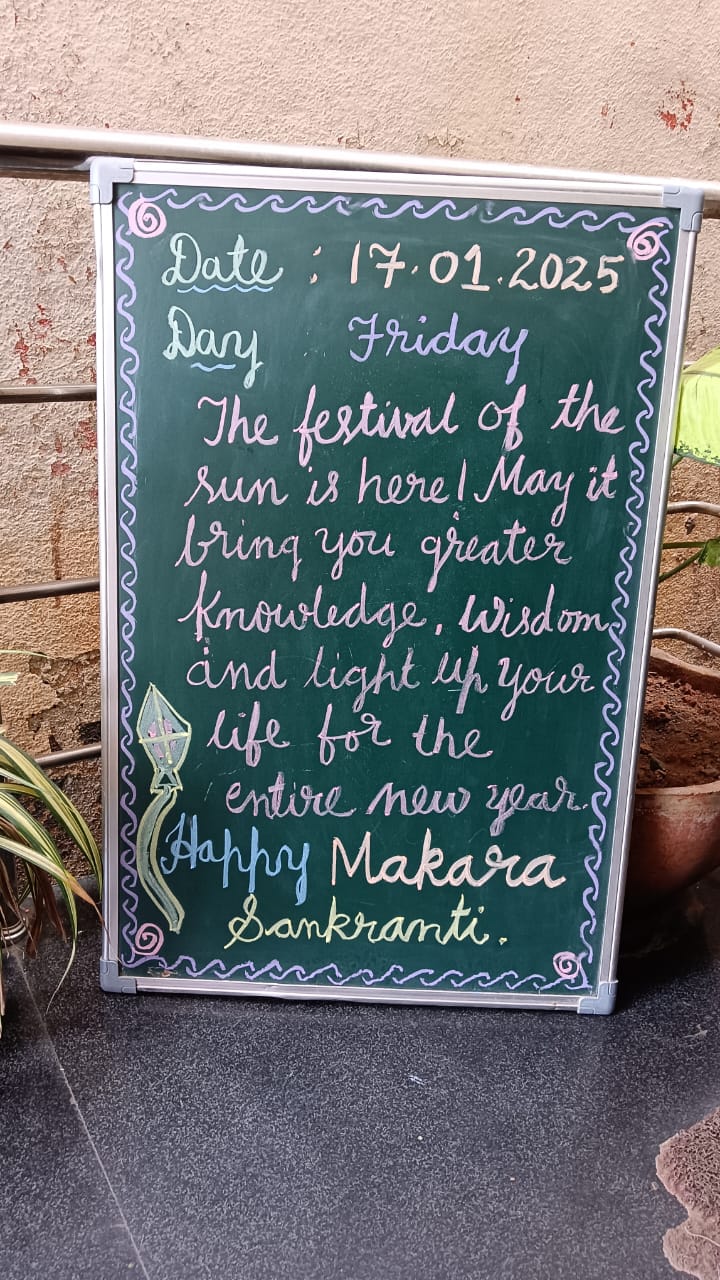 Date : 17.01.2025
Day Friday
The festival of the
sun is here! May it
bring you greater
knowledge, wisdom,
and light up your
life for the
entire new year.
Happy Makara
Sankranti.